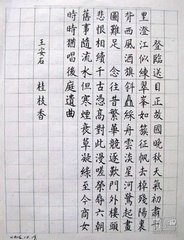 登臨送目正故國晚秋天氣初肅千
里澄江似練翠峯如簇征帆去棹殘陽裏
背西風酒旗斜矗綵舟雲淡星河鷺起畫
圖難足 念往昔繁華競逐歎門外樓頭
悲恨相續千古憑高對此漫嗟榮辱六朝
舊事隨流水但寒煙衰草凝綠至今商女
時時猶唱後庭遺曲
王安石
桂枝香